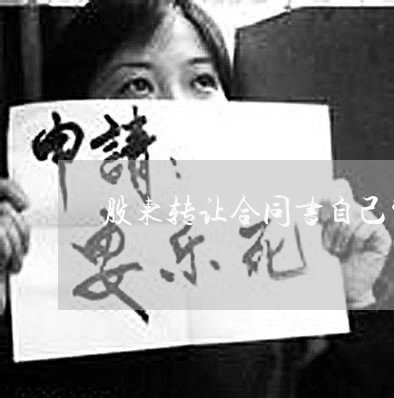 申請：
股东转让合同書自己
安乐死